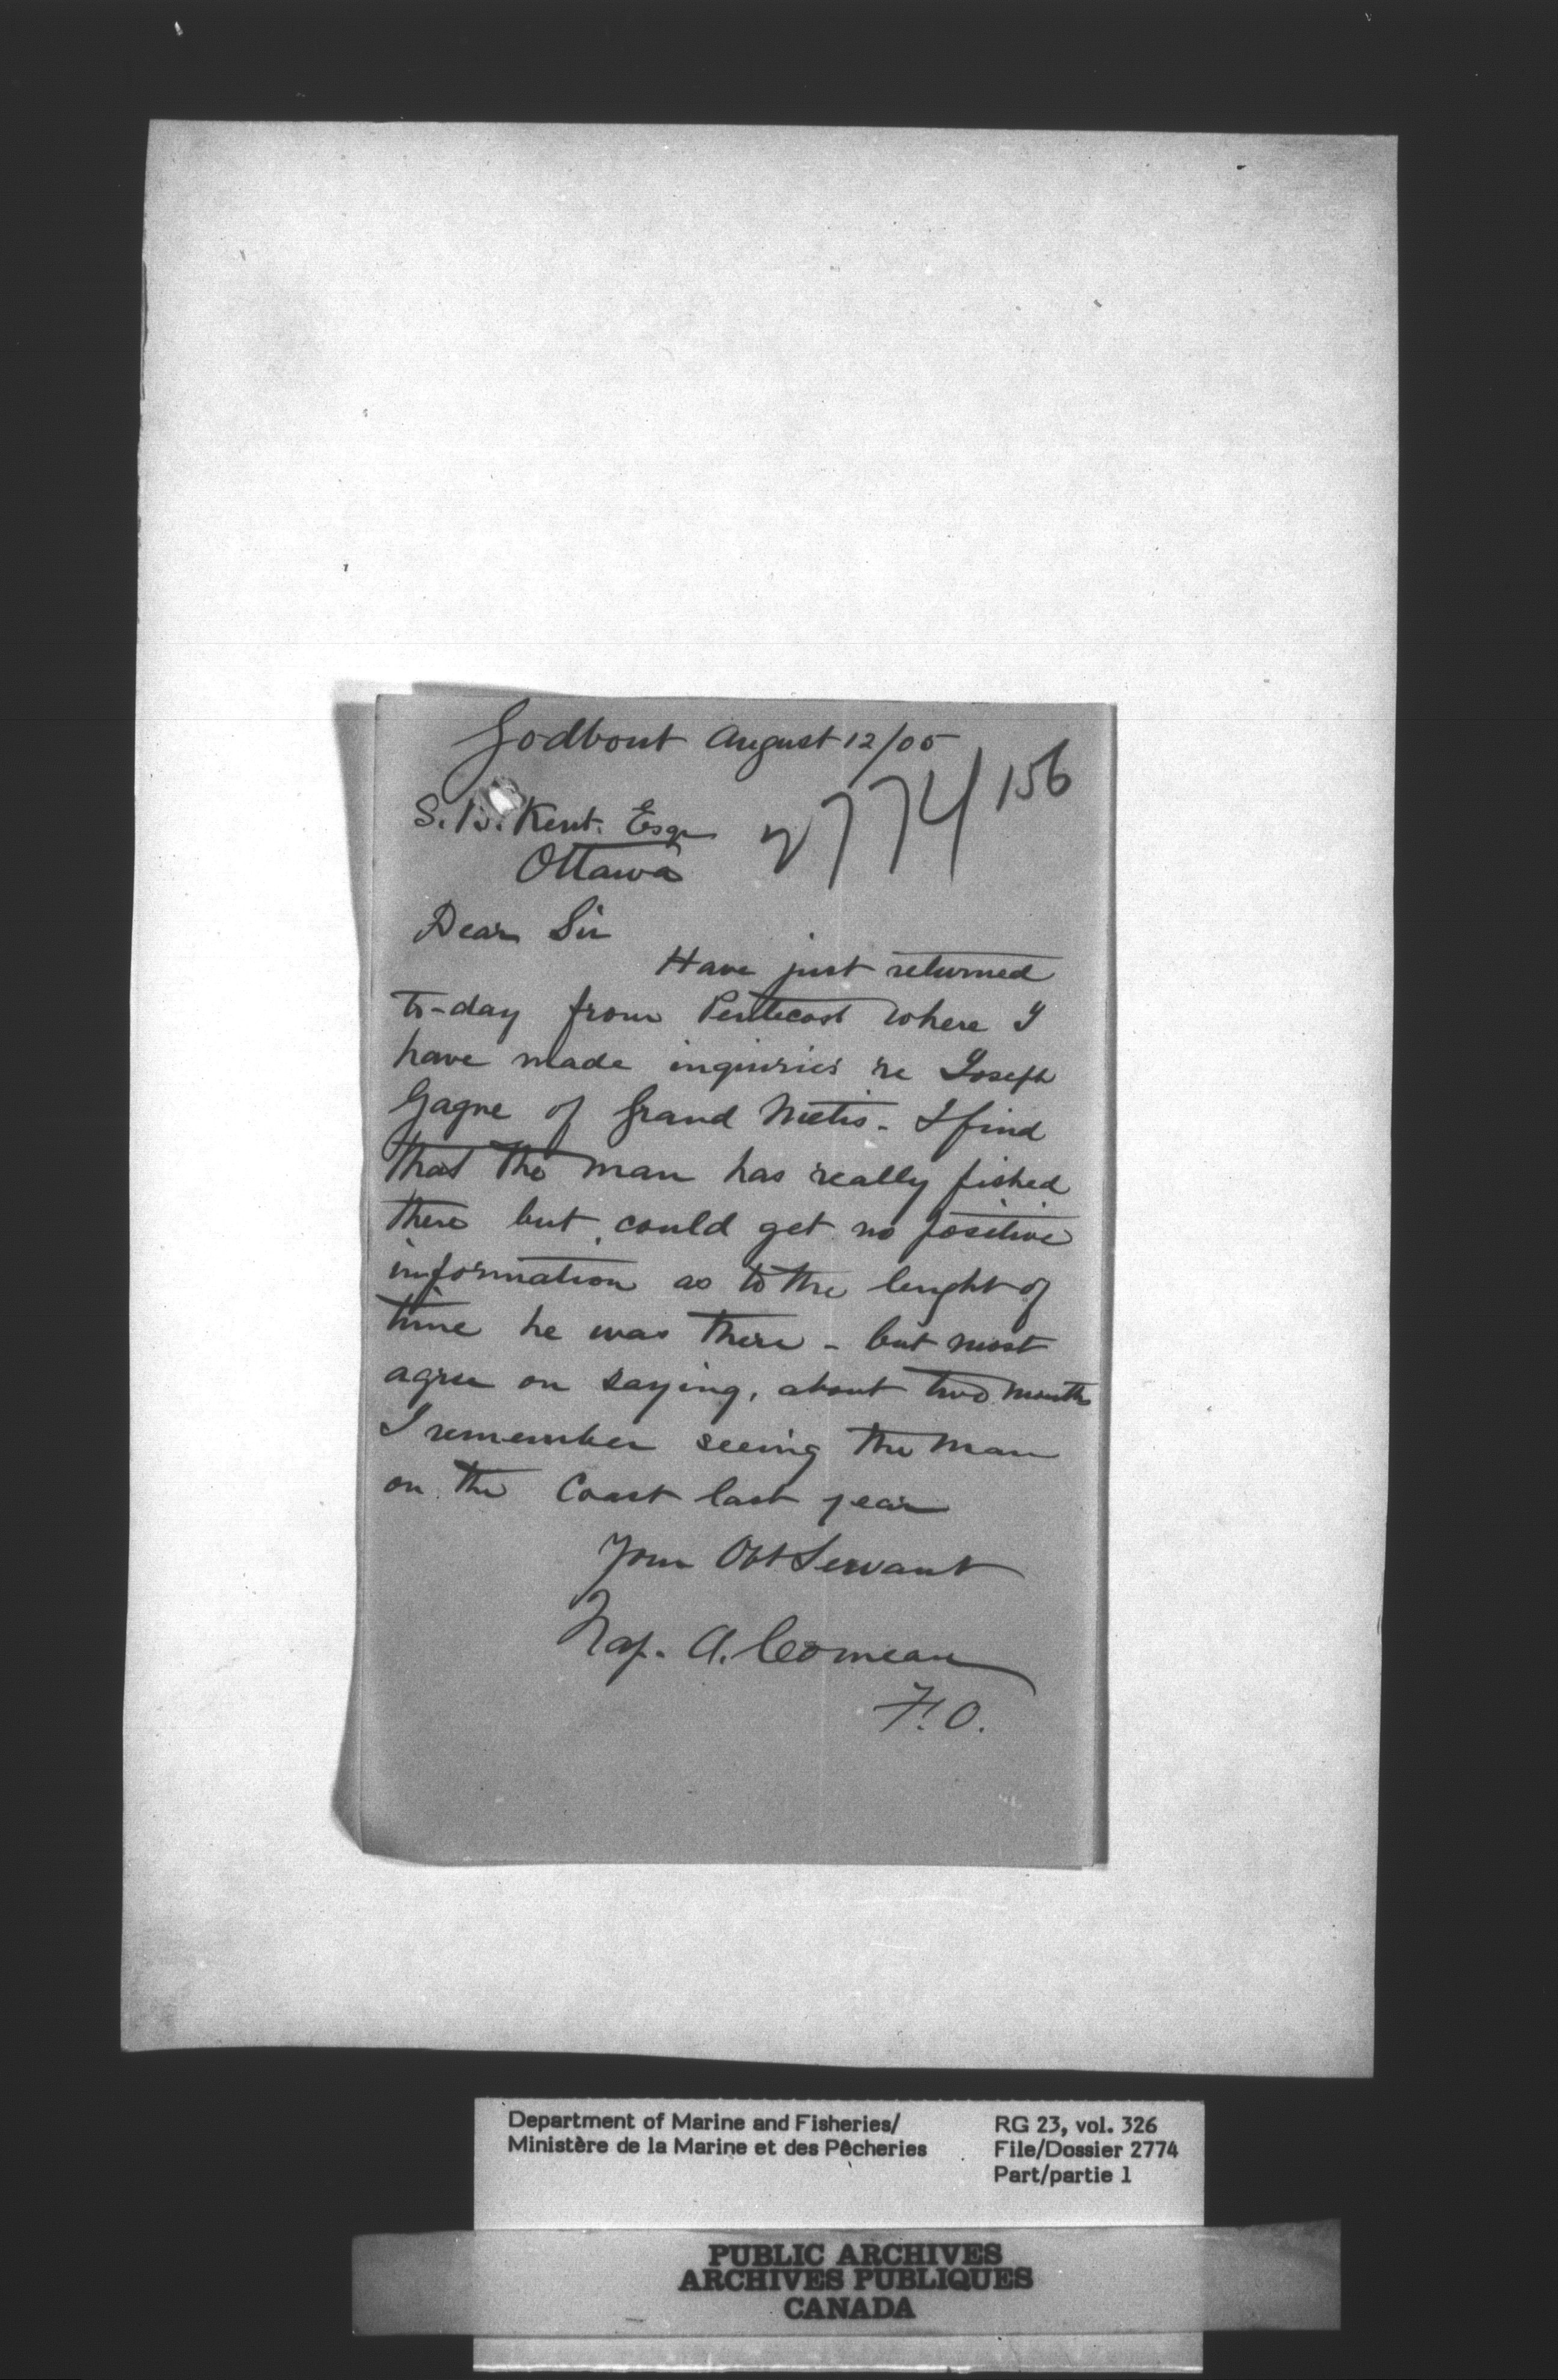 Godbout August 12/05
2774/156
S. B. Kent. Esqr
Ottawa
Dear Sir
Have just returned
to-day from Pentecost where I
have made inquiries re Joseph
Gagne of Grand Metis - I find
that the man has really fished
there but could get no positive
information as to the lenght of
time he was there - but most
agree on saying, about two months
I remember seeing the man
on the Coast last year
Your Obt Servant
Nap. A. Comeau
F. O.
Department of Marine and Fisheries/
Ministère de la Marine et des Pêcheries
RG 23, vol. 326
File/Dossier 2774
Part/partie 1
PUBLIC ARCHIVES
ARCHIVES PUBLIQUES
CANADA